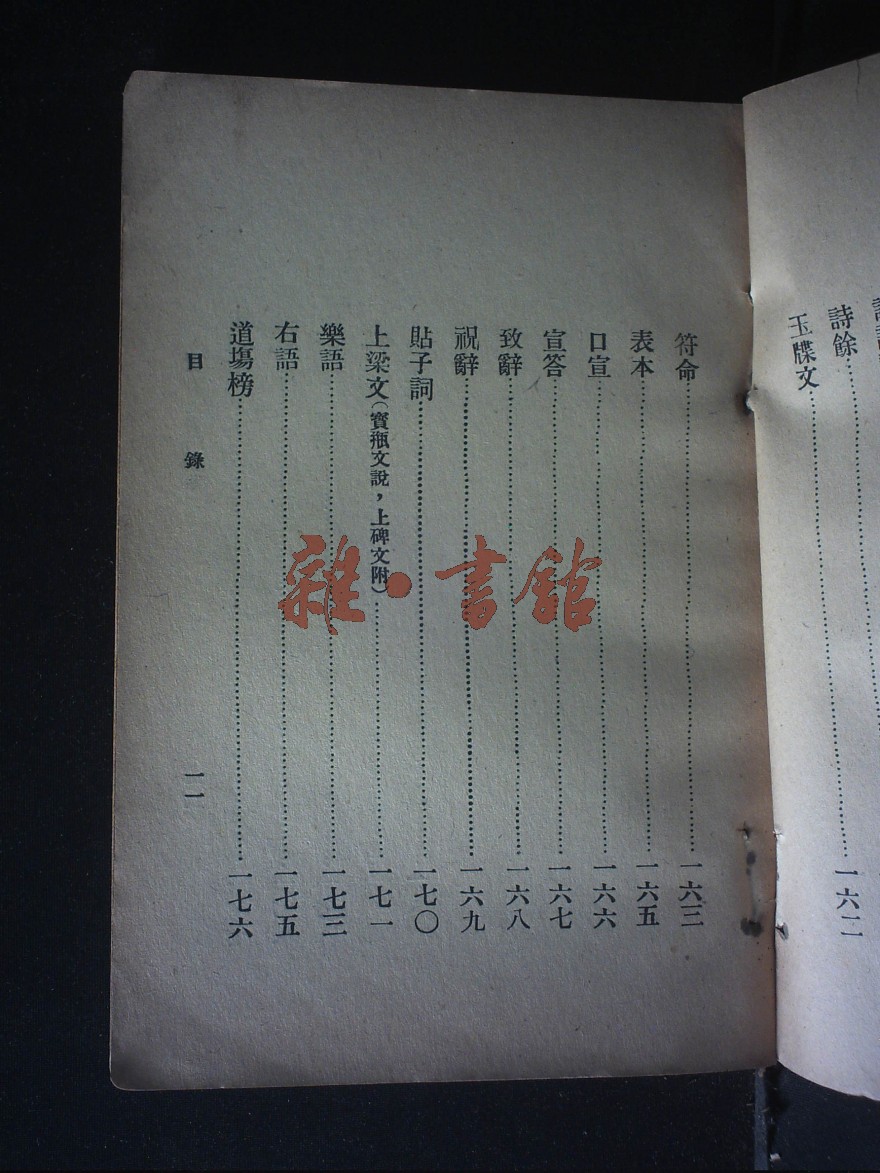 詩餘……一六二
玉牒文
符命……一六三
表本……一六五
口宣……一六六
宣答……一六七
致辭……一六八
祝辭……一六九
貼子詞……一七〇
上梁文(寶瓶文說，上碑文附)……一七一
樂語……一七三
右語……一七五
道塲榜……一七六
目錄
一一
雜·書館